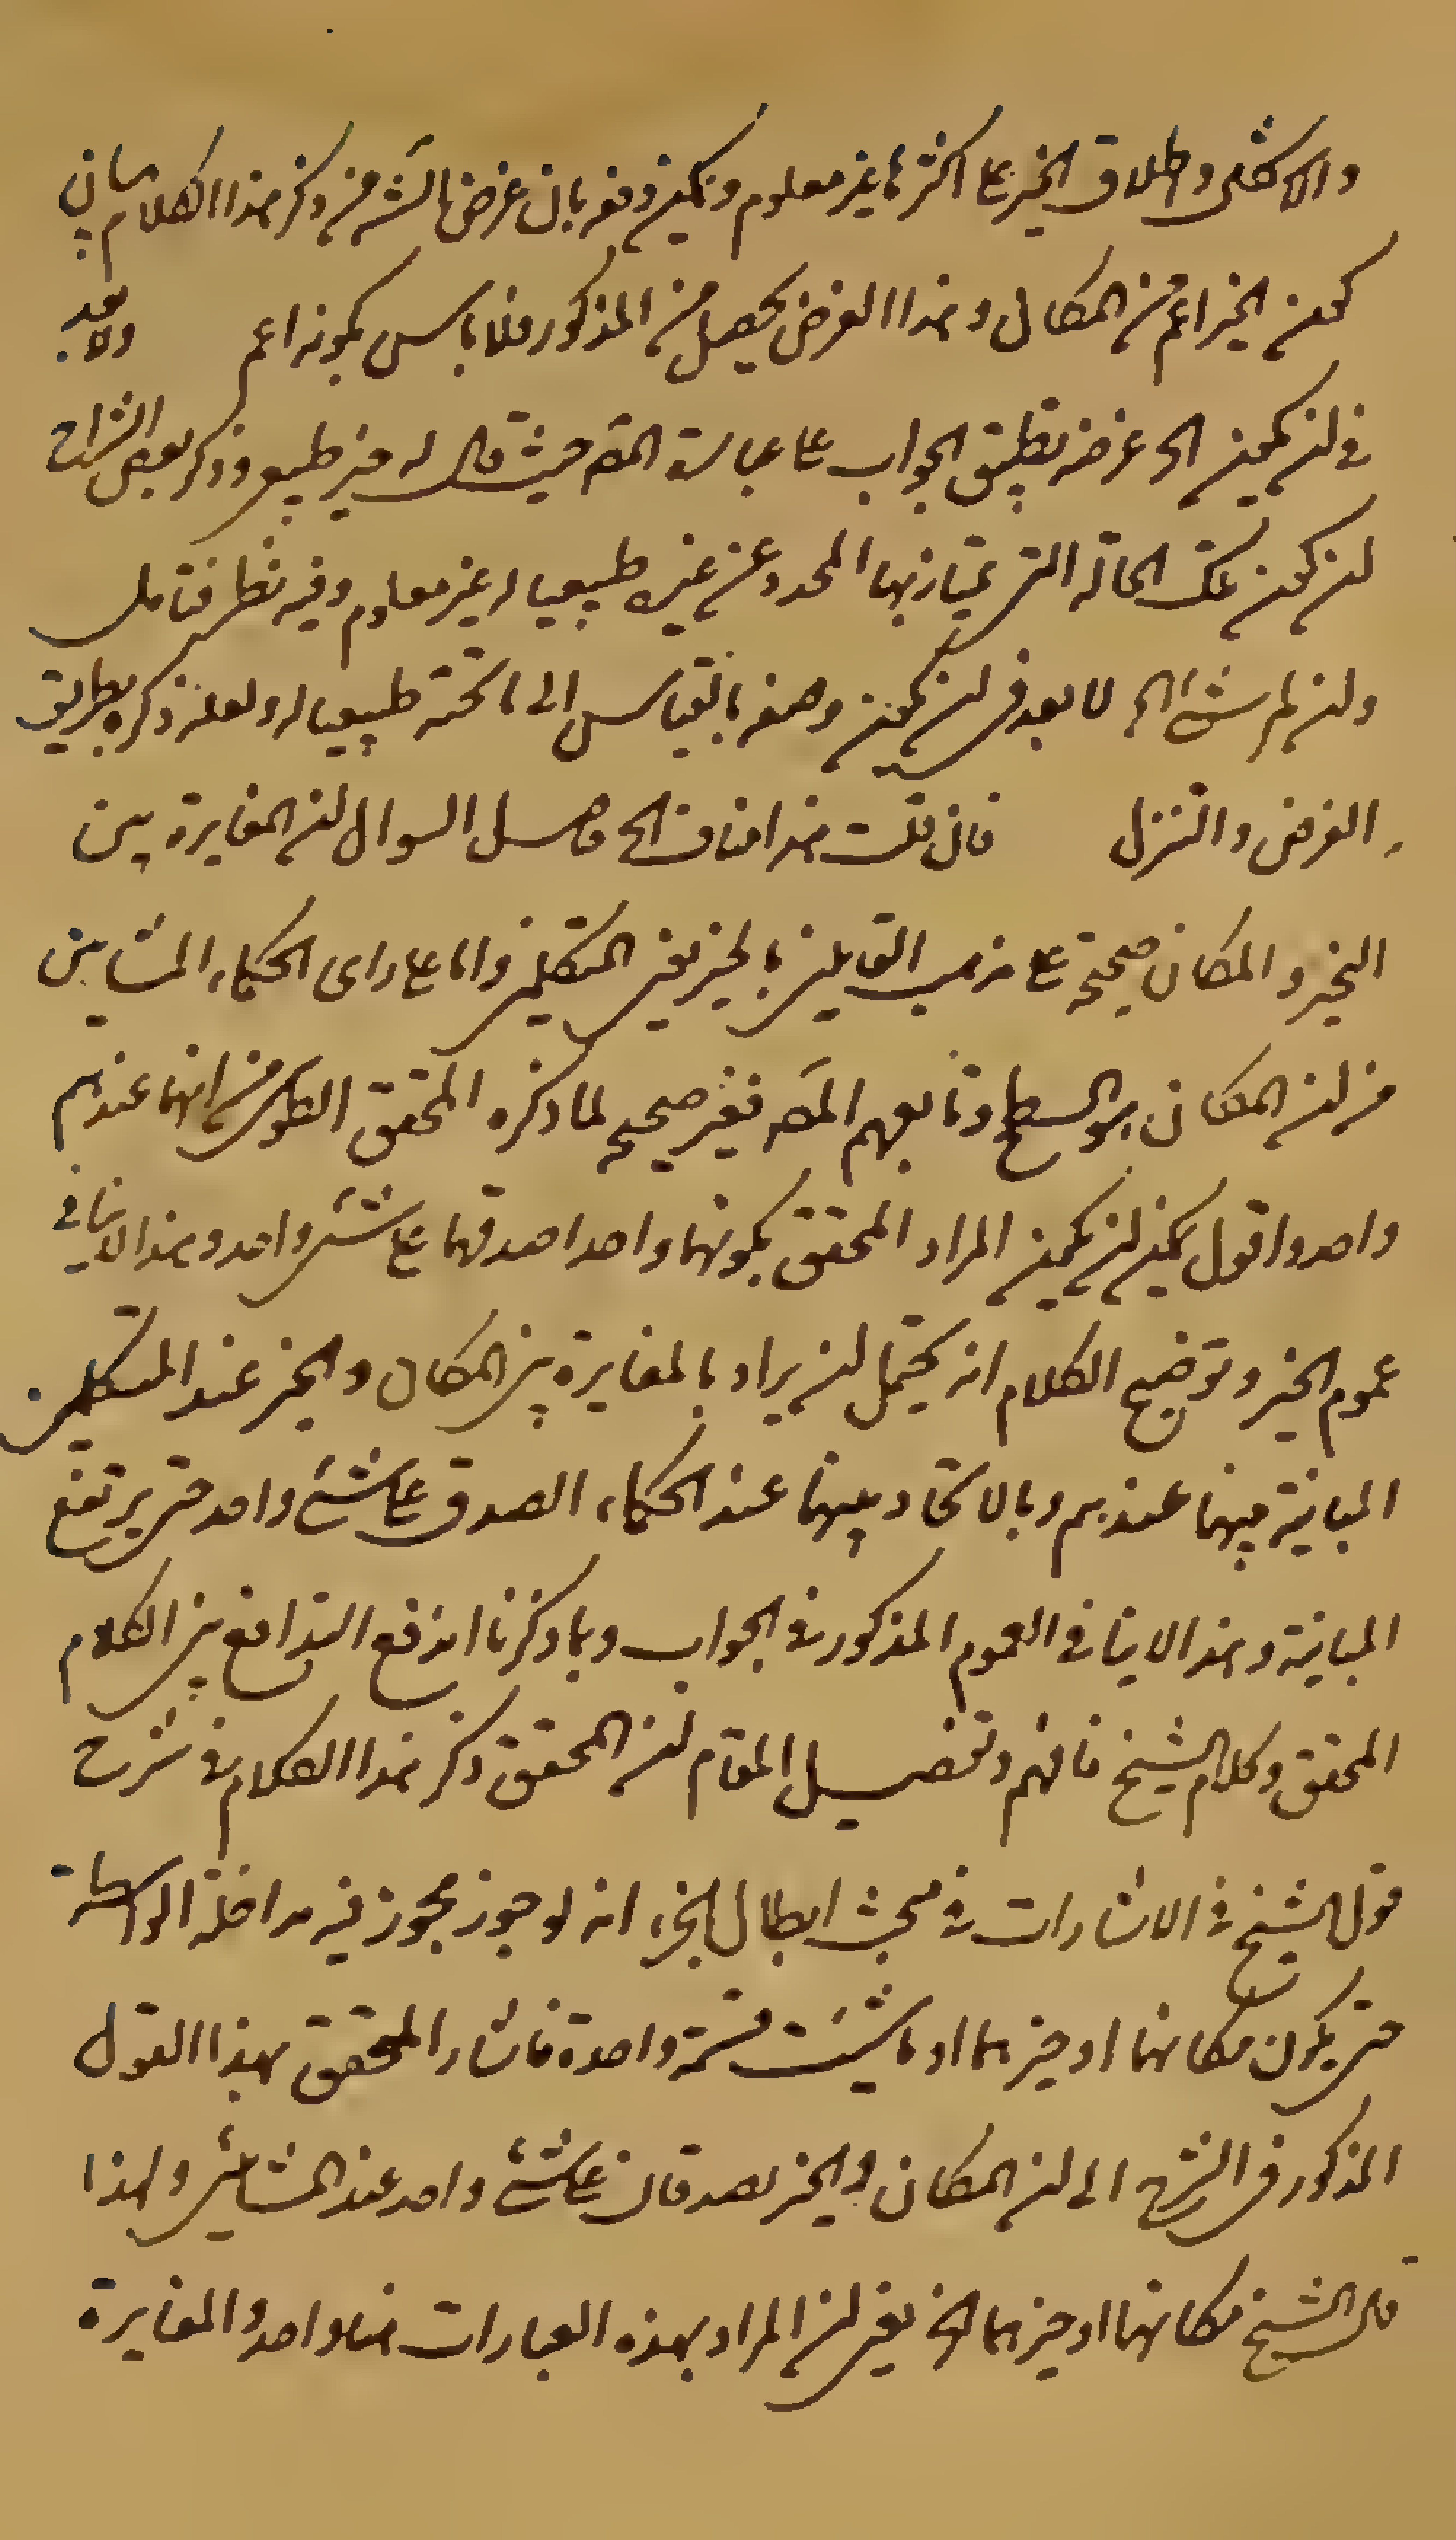 والاشكل واطلاق الحيز على اكثرها غير معلوم ويمكن دفعه بان غرض الش من ذكر هذا الكلام بيان
كون الحيز اعم من المكان وهذا الغرض يحصل من المذكور فلا باس بكونه اعم ولا بعد
في ان يكون الخ غرضه تطبيق الجواب على عبارة المص حيث قال له حيز طبيعي وذكر بعض الشراح
ان كون تلك الحالة التي يمتاز بها المحدد عن غيره طبيعيا له غير معلوم وفيه نظر فتامل
وان لم شئ الخ لا بعد في ان يكون وضعه بالقياس الى ما تحته طبيعيا له ولعله ذكره بطريق
الفرض والتنزل فان قلت هذا مناف الخ حاصل السوال ان المغايرة بين
الحيز والمكان صحيحة على مذهب القايلين بالحيز يعني المتكلمين واما على راى الحكماء المشايين
من ان المكان هو السطح وتابعهم المص فغير صحيح لما ذكره المحقق الطوسي من انهما عندهم
واحد واقول يمكن ان يكون المراد المحقق بكونهما واحدا صدقهما على شئ واحد وهذا لا ينافي
عموم الحيز وتوضيح الكلام انه يحتمل ان يراد بالمغايرة بين المكان والحيز عند المتكلمين
المباينة بينهما عندهم وبالاتحاد بينهما عند الحكماء الصدق على شئ واحد حتى يرتفع
المباينة وهذا لا ينافي العموم المذكور في الجواب وبما ذكرنا اندفع التدافع بين الكلام
المحقق وكلام الشيخ فافهم وتفصيل المقام ان المحقق ذكر هذا الكلام في شرح
قول الشيخ في الاشارات في مبحث ابطال الجزء انه لو جوز مجوز فيه مداخلة الواسطة
حتى يكون مكانهما او حيزهما او ما شئت فسمه واحدة فاشار المحقق بهذا القول
المذكور في الشرح الى ان المكان والحيز يصدقان على شئ واحد عند المشايين ولهذا
قال الشيخ مكانهما او حيزهما الخ يعني ان المراد بهذه العبارات هنا واحد والمغايرة